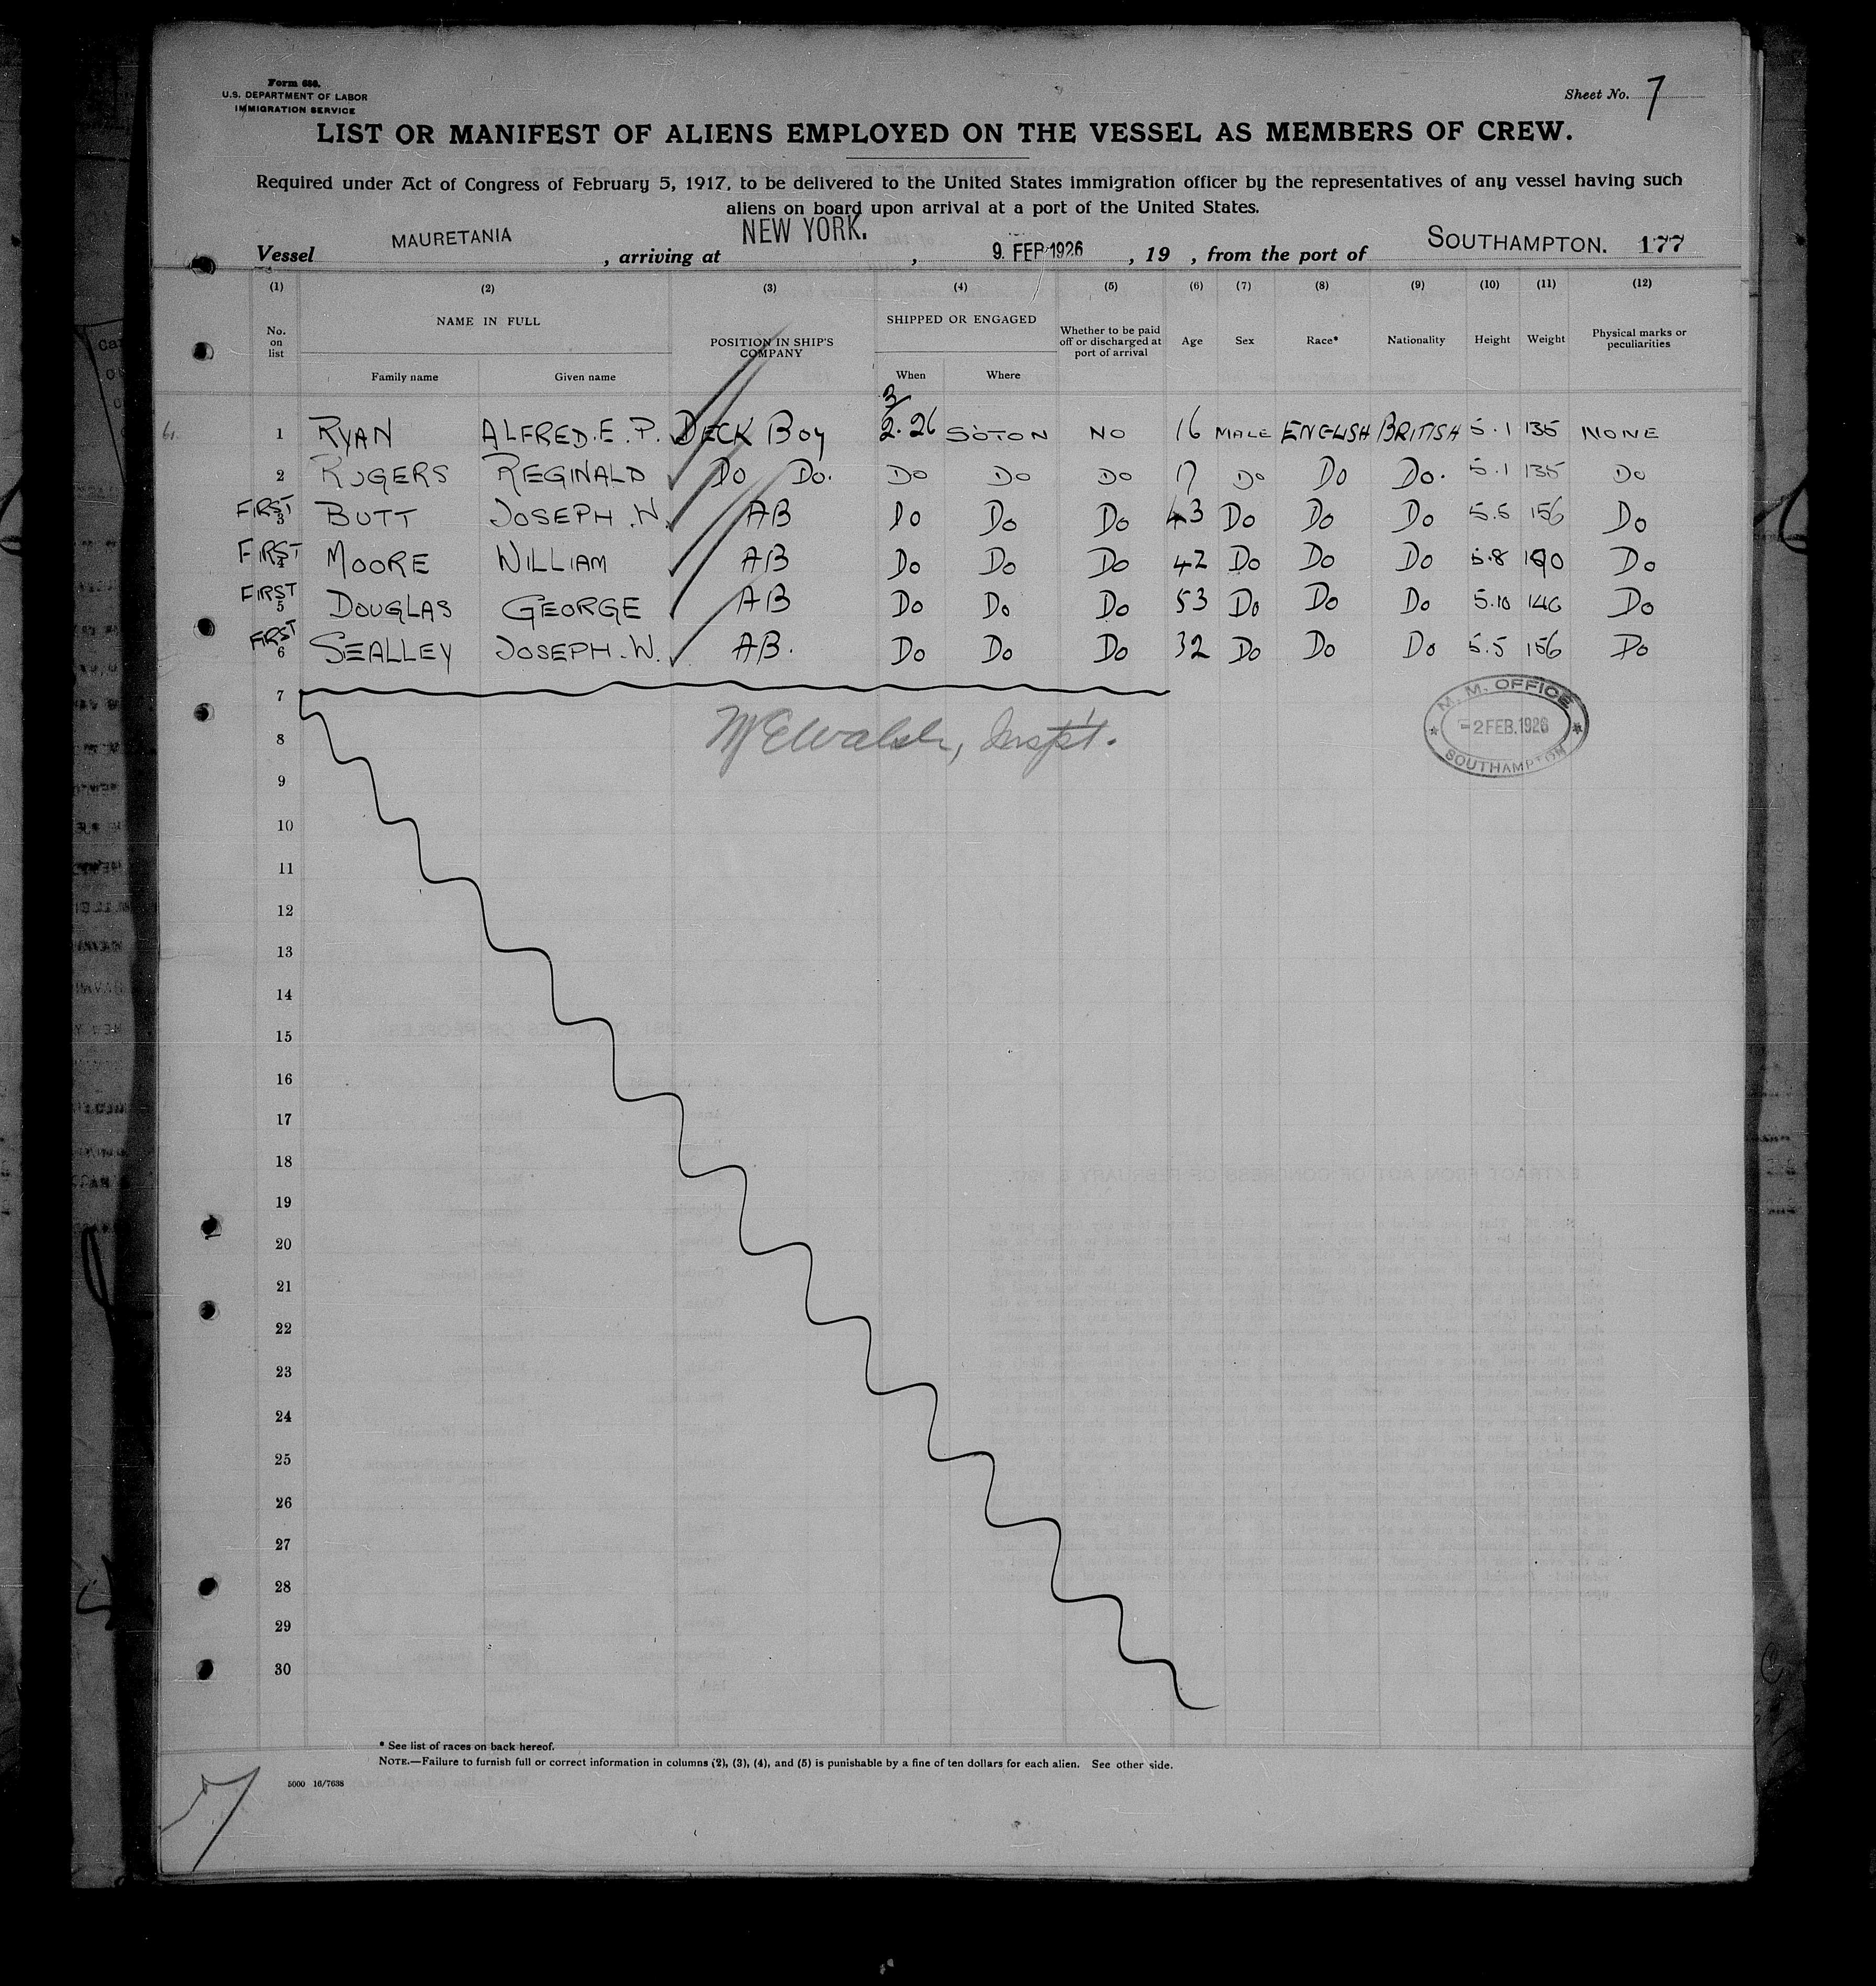 Form 680.
U.S. DEPARTMENT OF LABOR
IMMIGRATION SERVICE
Sheet No. 7
LIST OR MANIFEST OF ALIENS EMPLOYED ON THE VESSEL AS MEMBERS OF CREW.
Required under Act of Congress of February 5, 1917, to be delivered to the United States immigration officer by the representatives of any vessel having such
aliens on board upon arrival at a port of the United States.
Vessel MAURETANIA, arriving at NEW YORK., 9. FEB 1926, 19 , from the port of SOUTHAMPTON. 177
(1) (2) (3) (4) (5) (6) (7) (8) (9) (10) (11) (12)
No. on list NAME IN FULL POSITION IN SHIP'S COMPANY SHIPPED OR ENGAGED Whether to be paid off or discharged at port of arrival Age Sex Race* Nationality Height Weight Physical marks or peculiarities
Family name Given name When Where
1 RYAN ALFRED.E.P. DECK BOY 3/2.26 SOTON NO 16 MALE ENGLISH BRITISH 5.1 135 NONE
2 ROGERS REGINALD DO DO. DO DO DO 17 DO DO DO. 5.1 135 DO
FIRST 3 BUTT JOSEPH.W. AB DO DO DO 43 DO DO DO 5.5 156 DO
FIRST 4 MOORE WILLIAM AB DO DO DO 42 DO DO DO 5.8 190 DO
FIRST 5 DOUGLAS GEORGE AB DO DO DO 53 DO DO DO 5.10 146 DO
FIRST 6 SEALLEY JOSEPH.W. AB. DO DO DO 32 DO DO DO 5.5 156 DO
7
M. M. OFFICE
-2 FEB. 1926
SOUTHAMPTON
8 Walsh, Inspt.
9
10
11
12
13
14
15
16
17
18
19
20
21
22
23
24
25
26
27
28
29
30
* See list of races on back hereof.
NOTE.—Failure to furnish full or correct information in columns (2), (3), (4), and (5) is punishable by a fine of ten dollars for each alien. See other side.
5000 16/7638